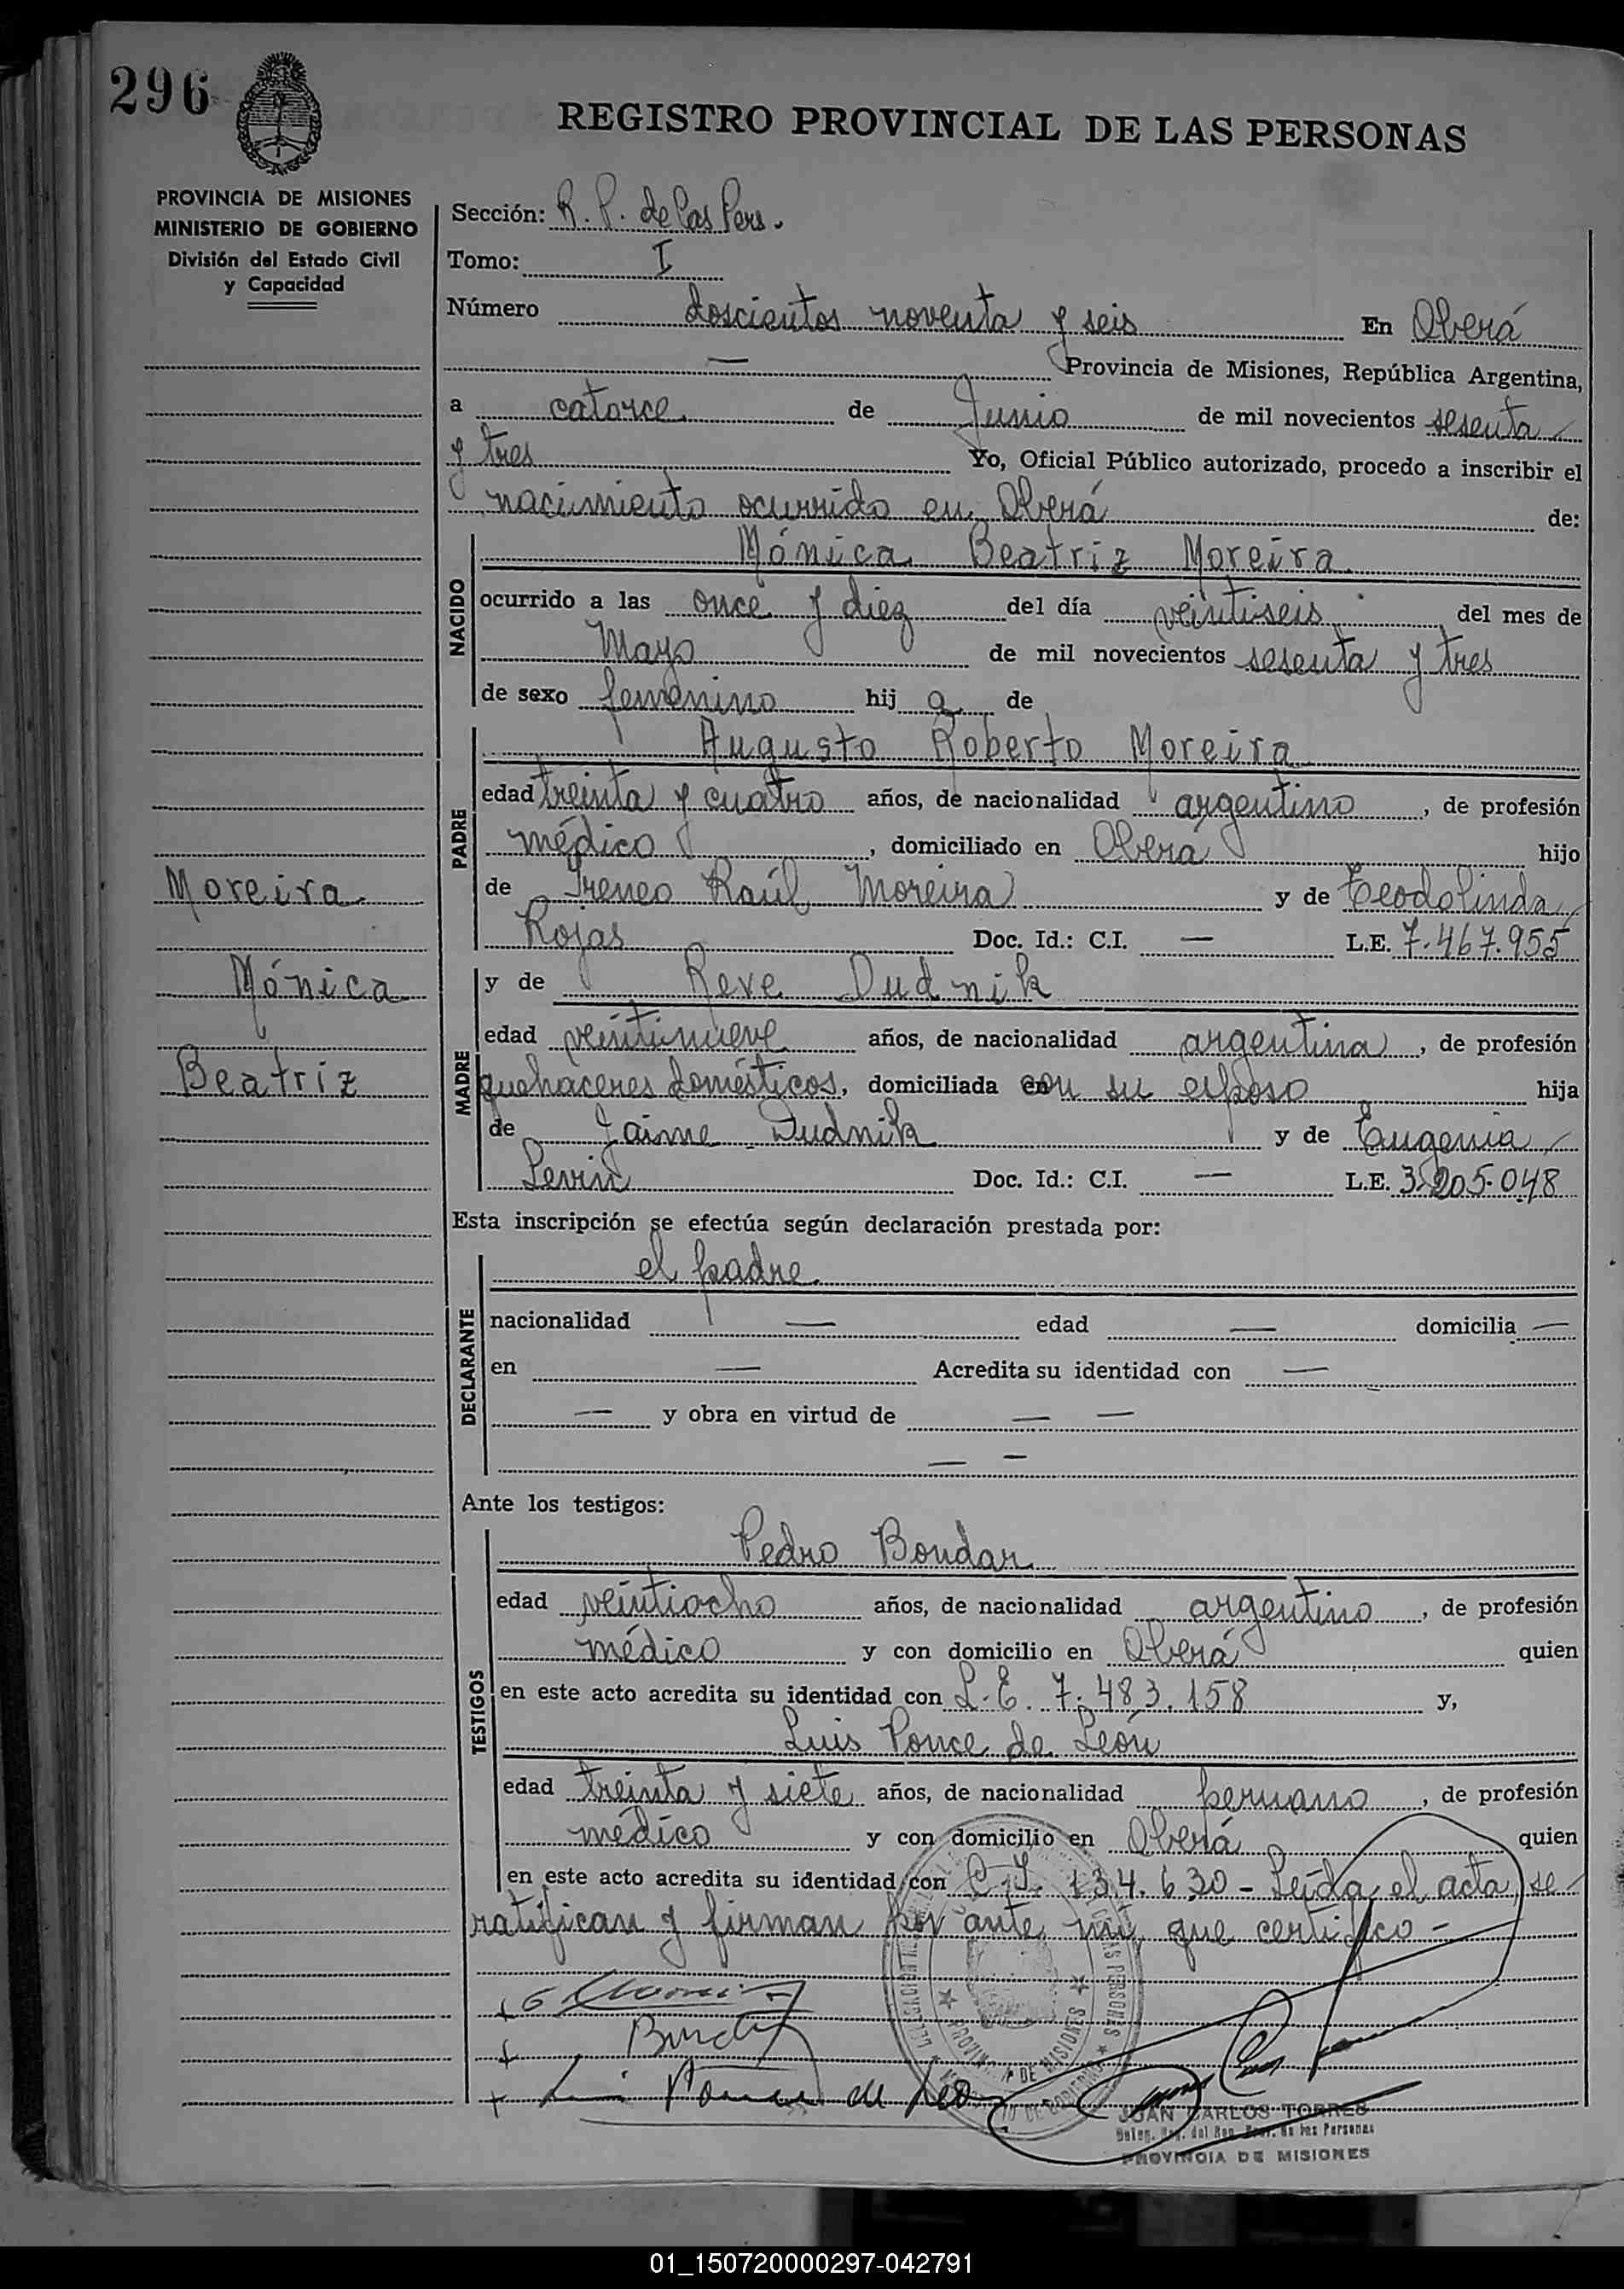 296
REGISTRO PROVINCIAL DE LAS PERSONAS
PROVINCIA DE MISIONES
MINISTERIO DE GOBIERNO
División del Estado Civil
y Capacidad
Sección: R. P. de las Pers.
Tomo: I
Número doscientos noventa y seis En Oberá
— Provincia de Misiones, República Argentina,
a catorce de Junio de mil novecientos sesenta
y tres Yo, Oficial Público autorizado, procedo a inscribir el
nacimiento ocurrido en Oberá de:
NACIDO
Mónica Beatriz Moreira
ocurrido a las once y diez del día veintiseis del mes de
Mayo de mil novecientos sesenta y tres
de sexo femenino hij a de
PADRE
Augusto Roberto Moreira
edad treinta y cuatro años, de nacionalidad argentino, de profesión
médico, domiciliado en Oberá hijo
de Ireneo Raúl Moreira y de Teodolinda
Rojas Doc. Id.: C.I. — L.E. 7.467.955
Moreira
Mónica
Beatriz
MADRE
y de Reve Dudnik
edad veintinueve años, de nacionalidad argentina, de profesión
quehaceres domésticos, domiciliada con su esposo hija
de Jaime Dudnik y de Eugenia
Levin Doc. Id.: C.I. — L.E. 3.205.048
Esta inscripción se efectúa según declaración prestada por:
DECLARANTE
el padre
nacionalidad — edad — domicilia —
en — Acredita su identidad con —
— y obra en virtud de — —
— —
Ante los testigos:
TESTIGOS
Pedro Bondar
edad veintiocho años, de nacionalidad argentino, de profesión
médico y con domicilio en Oberá quien
en este acto acredita su identidad con L.E. 7.483.158 y,
Luis Ponce de León
edad treinta y siete años, de nacionalidad peruano, de profesión
médico y con domicilio en Oberá quien
en este acto acredita su identidad con C.I. 134.630 - Leída el acta, se
ratifican y firman por ante mí, que certifico -
Luis Ponce de Leo
PROVINCIA DE MISIONES
JUAN CARLOS TORRES
PROVINCIA DE MISIONES
01_150720000297-042791